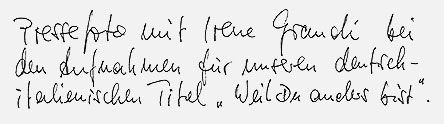 Pressefoto mit Irene Grandi bei
den Aufnahmen für unseren deutsch-
italienischen Titel „Weil Du anders bist".